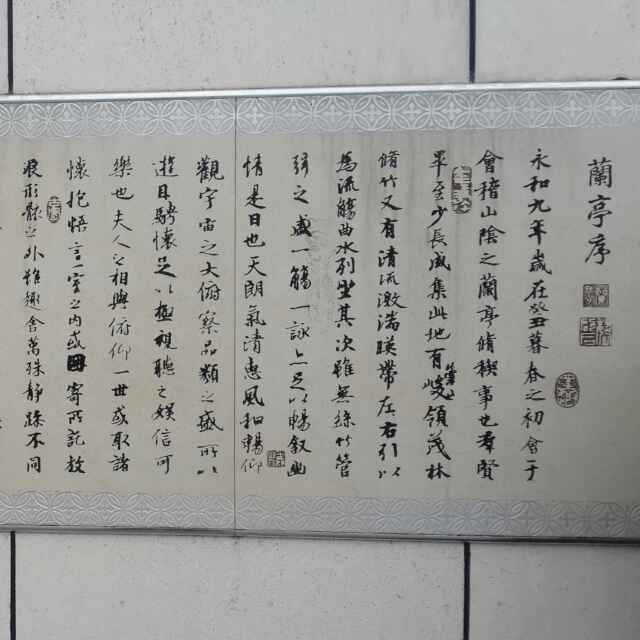 蘭亭序
永和九年歲在癸丑暮春之初會于
會稽山陰之蘭亭脩稧事也羣賢
畢至少長咸集此地有崇山峻領茂林
脩竹又有清流激湍暎帶左右引以
為流觴曲水列坐其次雖無絲竹管
弦之盛一觴一詠上足以暢敘幽
情是日也天朗氣清惠風和暢仰
觀宇宙之大俯察品類之盛所以
遊目騁懷足以極視聽之娛信可
樂也夫人之相與俯仰一世或取諸
懷抱悟言一室之內或因寄所託放
浪形骸之外雖趣舍萬殊靜躁不同